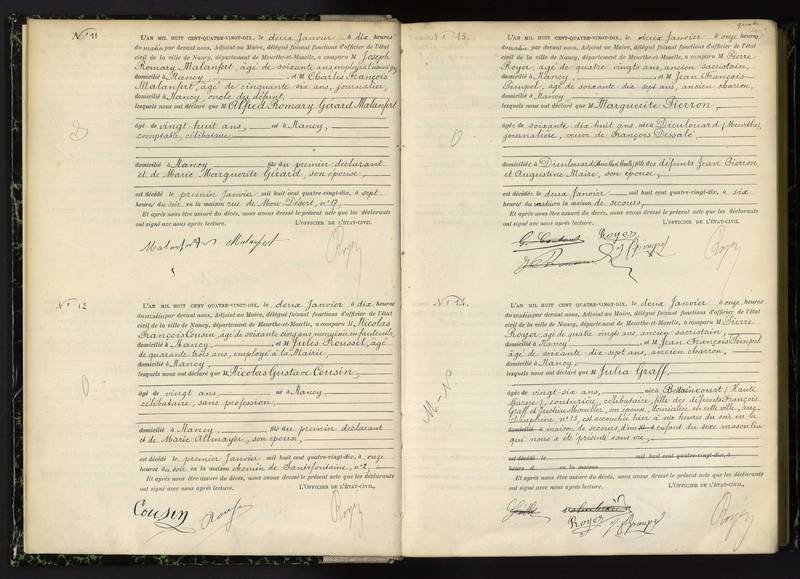 N° 11
L'AN MIL HUIT CENT QUATRE-VINGT-DIX, le deux Janvier à dix heures
du matin par devant nous, Adjoint au Maire, délégué faisant fonctions d'officier de l'état
civil de la ville de Nancy, département de Meurthe-et-Moselle, a comparu M Joseph
Romary Malanfert, âgé de soixante ans, employé
domicilié à Nancy et M Charles François
Malanfert, âgé de cinquante six ans, journalier,
domicilié à Nancy, oncle du défunt,
lesquels nous ont déclaré que M Alfred Romary Gérard Malanfert
âgé de vingt huit ans, né à Nancy,
comptable, célibataire,
domicilié à Nancy fils du premier déclarant
et de Marie Marguerite Gérard, son épouse,
est décédé le premier Janvier mil huit cent quatre-vingt-dix, à sept
heures du soir en la maison rue de Mon Désert, n° 17,
Et après nous être assuré du décès, nous avons dressé le présent acte que les déclarants
ont signé avec nous après lecture. L'OFFICIER DE L'ÉTAT-CIVIL.
Malanfert Malanfert
N° 12
L'AN MIL HUIT CENT QUATRE-VINGT-DIX, le deux Janvier à dix heures
du matin par devant nous, Adjoint au Maire, délégué faisant fonctions d'officier de l'état
civil de la ville de Nancy, département de Meurthe-et-Moselle, a comparu M Nicolas
François Cousin, âgé de soixante cinq ans, menuisier en fauteuils,
domicilié à Nancy, et M Jules Roussel, âgé
de quarante trois ans, employé à la Mairie,
domicilié à Nancy,
lesquels nous ont déclaré que M Nicolas Gustave Cousin,
âgé de vingt ans, né à Nancy,
célibataire, sans profession,
domicilié à Nancy, fils du premier déclarant
et de Marie Altmayer, son épouse,
est décédé le premier Janvier mil huit cent quatre-vingt-dix, à onze
heures du soir en la maison chemin de Santifontaine, n° 2,
Et après nous être assuré du décès, nous avons dressé le présent acte que les déclarants
ont signé avec nous après lecture. L'OFFICIER DE L'ÉTAT-CIVIL.
Cousin
N° 13.
L'AN MIL HUIT CENT QUATRE-VINGT-DIX, le deux Janvier à onze heures
du matin par devant nous, Adjoint au Maire, délégué faisant fonctions d'officier de l'état
civil de la ville de Nancy, département de Meurthe-et-Moselle, a comparu M Pierre
Royer, âgé de quatre vingts ans, ancien sacristain,
domicilié à Nancy, et M Jean François
Pimpel, âgé de soixante dix sept ans, ancien charron,
domicilié à Nancy,
lesquels nous ont déclaré que M Marguerite Pierron,
âgée de soixante dix huit ans, née à Dieulouard (Meurthe),
journalière, veuve de François Dessalé,
domiciliée à Dieulouard fille des défunts Jean Pierron,
et Augustine Maire, son épouse,
est décédée le deux Janvier mil huit cent quatre-vingt-dix, à six
heures du matin en la maison de secours,
Et après nous être assuré du décès, nous avons dressé le présent acte que les déclarants
ont signé avec nous après lecture. L'OFFICIER DE L'ÉTAT-CIVIL.
Royer
N° 14.
L'AN MIL HUIT CENT QUATRE-VINGT-DIX, le deux Janvier à onze heures
du matin par devant nous, Adjoint au Maire, délégué faisant fonctions d'officier de l'état
civil de la ville de Nancy, département de Meurthe-et-Moselle, a comparu M Pierre
Royer, âgé de quatre vingts ans, ancien sacristain,
domicilié à Nancy et M Jean François Pimpel
âgé de soixante dix sept ans, ancien charron,
domicilié à Nancy,
lesquels nous ont déclaré que M Julia Graff,
âgée de vingt six ans, née à Bettaincourt (Haute
Marne), couturière, célibataire, fille des défunts François
Graff et Justine Mouiller, son épouse, domiciliée en cette ville, rue
Dauphine, n° 13, est accouchée hier à six heures du soir en la
maison de secours, d'un enfant du sexe masculin
qui nous a été présenté sans vie,
est décédé le mil huit cent quatre-vingt-dix, à
heures d en la maison
Et après nous être assuré du décès, nous avons dressé le présent acte que les déclarants
ont signé avec nous après lecture. L'OFFICIER DE L'ÉTAT-CIVIL.
Royer